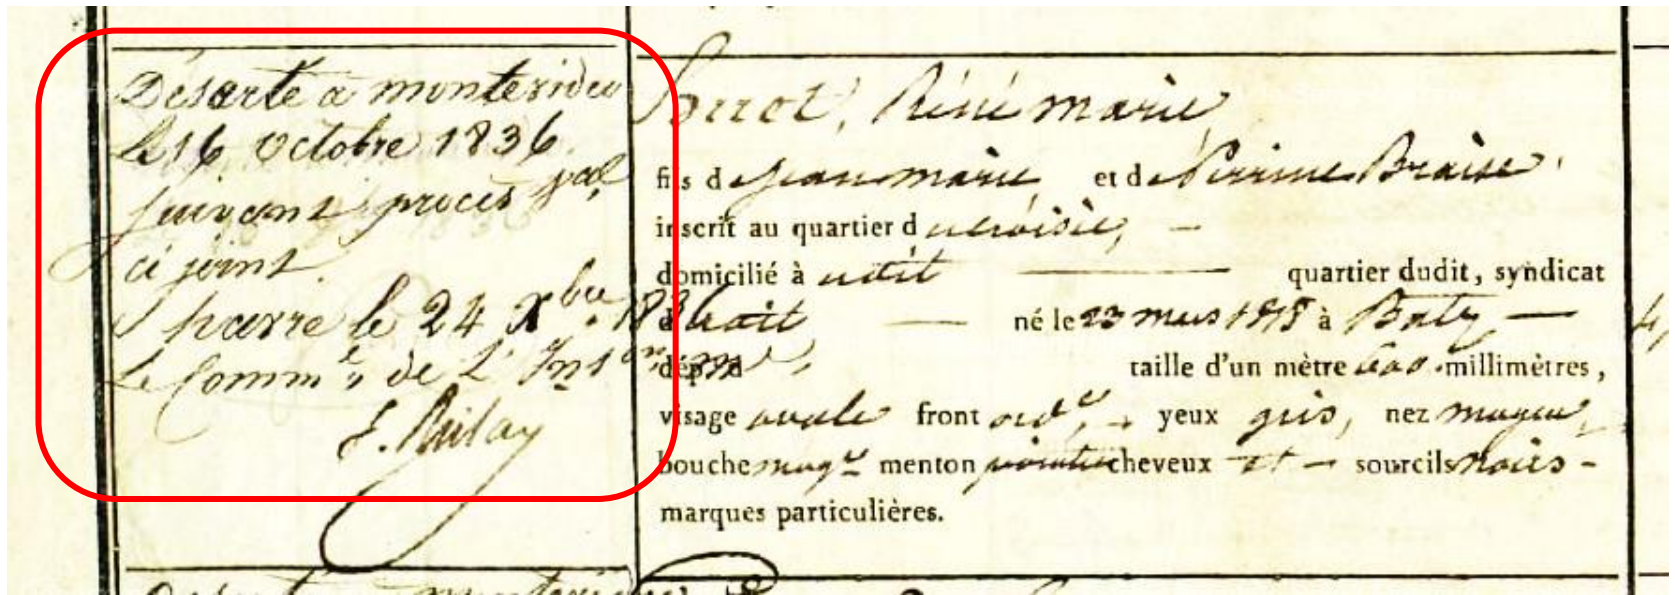 Désarté a montevideo
le 16 octobre 1836.
suivant procès val
ci joint.
havre le 24 Xbre 1836
Le Commre de L'Inson mme,
René marie
fils de Jean marie et de Perrine Braise.
inscrit au quartier d
domicilié à quartier dudit, syndicat
d né le 23 mars 1818 à Batz
dép. d taille d'un mètre 600 millimètres,
visage ovale front ordre, yeux gris, nez moyen,
bouche moyne menton pointu cheveux et sourcils noirs
marques particulières.